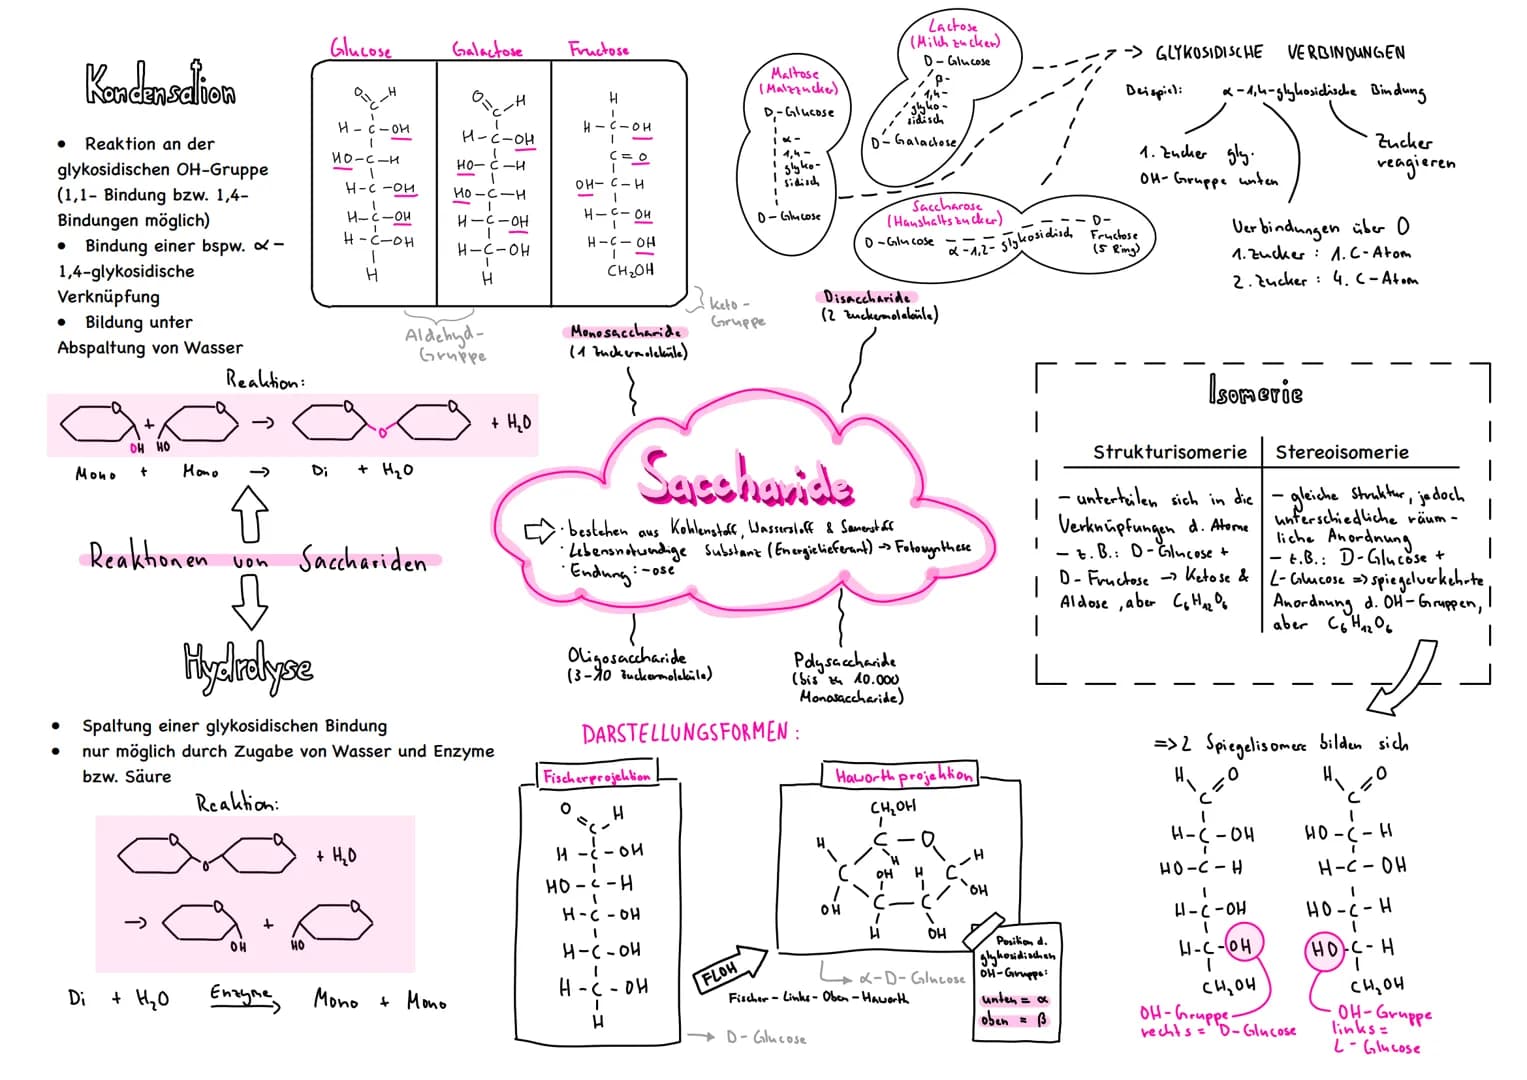 Kondensation
• Reaktion an der
glykosidischen OH-Gruppe
(1,1- Bindung bzw. 1,4-
Bindungen möglich)
• Bindung einer bspw. α-
1,4-glykosidische
Verknüpfung
• Bildung unter
Abspaltung von Wasser
Reaktion:
OH HO
+ → O + H₂O
Mono + Mono → Di + H₂O
Reaktionen von Sacchariden
Hydrolyse
• Spaltung einer glykosidischen Bindung
• nur möglich durch Zugabe von Wasser und Enzyme
bzw. Säure
Reaktion:
+ H₂O
→ OH + HO
Di + H₂O Enzyme → Mono + Mono
Glucose Galactose Fructose
O H
C
H-C-OH
HO-C-H
H-C-OH
H-C-OH
H-C-OH
H
O H
C
H-C-OH
HO-C-H
HO-C-H
H-C-OH
H-C-OH
H
H
H-C-OH
C=O
OH-C-H
H-C-OH
H-C-OH
CH₂OH
Aldehyd-
Gruppe
Keto-
Gruppe
Monosaccharide
(1 Zuckermoleküle)
Disaccharide
(2 Zuckermoleküle)
Maltose
(Malzzucker)
D-Glucose
α-
1,4-
glyko-
sidisch
D-Glucose
Lactose
(Milchzucker)
D-Glucose
β-
1,4-
glyko-
sidisch
D-Galactose
Saccharose
(Haushaltszucker)
D-Glucose α-1,2- glykosidisch D-
Fructose
(5 Ring)
→ GLYKOSIDISCHE VERBINDUNGEN
Beispiel: α-1,4-glykosidische Bindung
1. Zucker gly.
OH-Gruppe unten
Zucker
reagieren
Verbindungen über O
1. Zucker : 1. C-Atom
2. Zucker : 4. C-Atom
Saccharide
· bestehen aus Kohlenstoff, Wasserstoff & Sauerstoff
· Lebensnotwendige Substanz (Energielieferant) → Fotosynthese
· Endung: -ose
Oligosaccharide
(3-10 Zuckermoleküle)
Polysaccharide
(bis zu 10.000
Monosaccharide)
Isomerie
Strukturisomerie
- unterteilen sich in die
Verknüpfungen d. Atome
- z.B.: D-Glucose +
D-Fructose → Ketose &
Aldose, aber C₆H₁₂O₆
Stereoisomerie
- gleiche Struktur, jedoch
unterschiedliche räum-
liche Anordnung
- z.B.: D-Glucose +
L-Glucose => spiegelverkehrte
Anordnung d. OH-Gruppen,
aber C₆H₁₂O₆
=> 2 Spiegelisomere bilden sich
H O
C
H-C-OH
HO-C-H
H-C-OH
H-C-OH
CH₂OH
OH-Gruppe
rechts = D-Glucose
H O
C
HO-C-H
H-C-OH
HO-C-H
HO-C-H
CH₂OH
OH-Gruppe
links =
L-Glucose
DARSTELLUNGSFORMEN:
Fischerprojektion
O H
C
H-C-OH
HO-C-H
H-C-OH
H-C-OH
H-C-OH
H
→ D-Glucose
FLOH
Fischer-Links-Oben-Haworth
Haworthprojektion
CH₂OH
C-O
H H H
C OH H C
OH C-C OH
H OH
α-D-Glucose
Position d.
glykosidischen
OH-Gruppe:
unten = α
oben = β